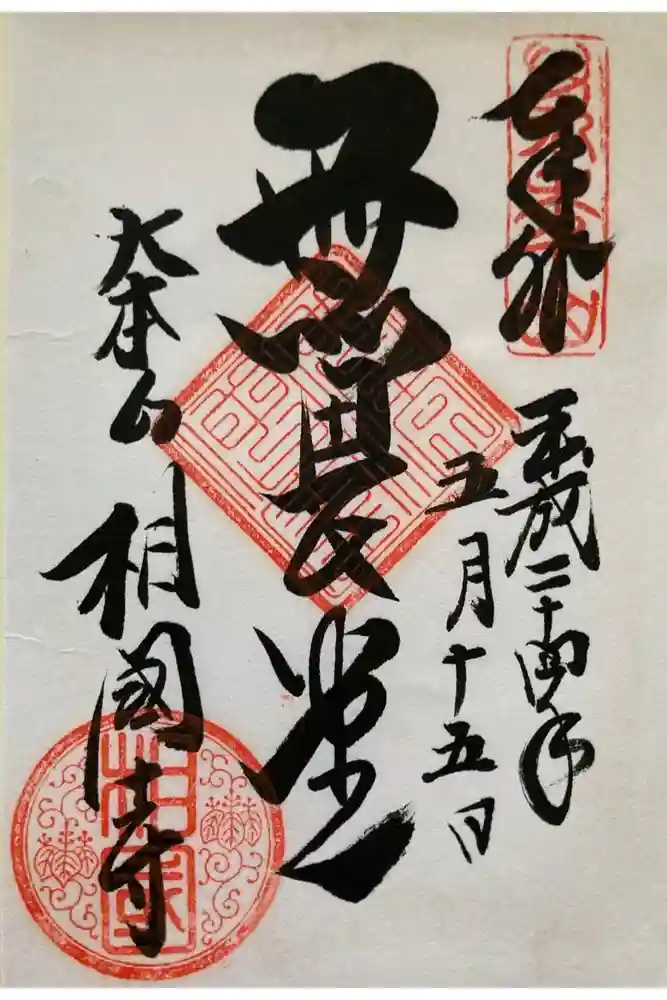 奉拝
平成二十四年
五月十五日
無畏堂
大本山 相國寺
相國